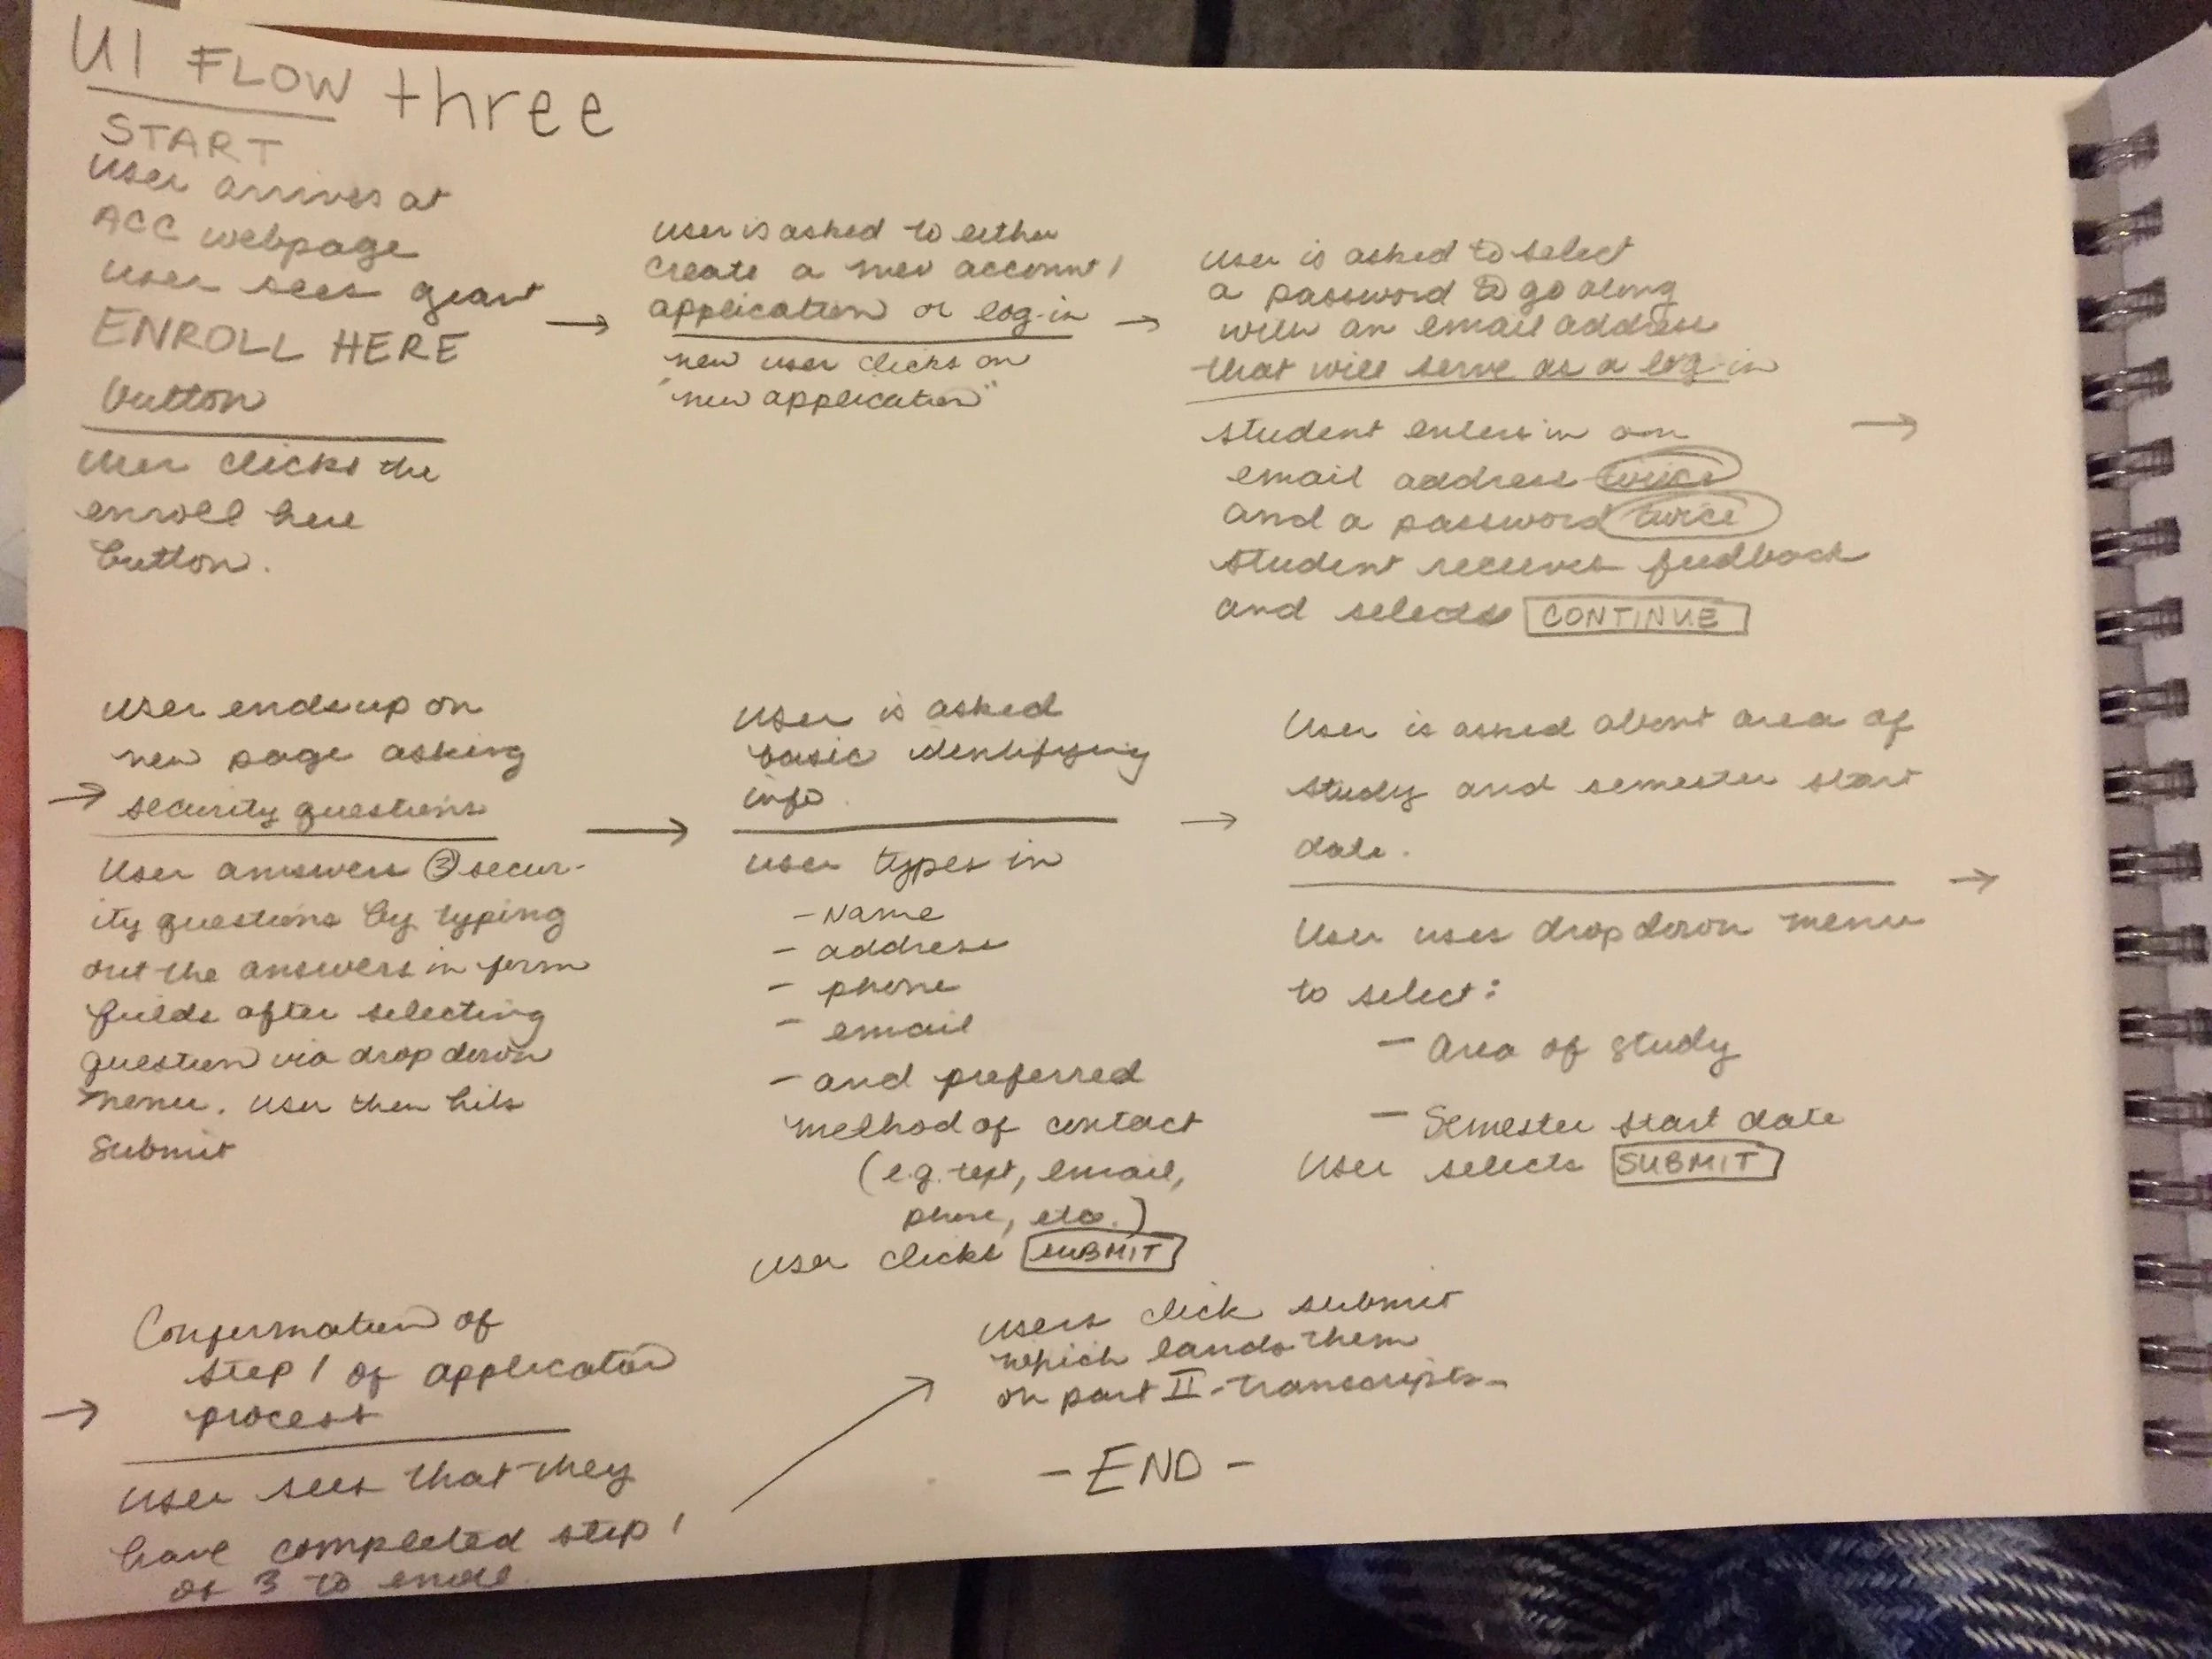 UI FLOW three
START
User arrives at
ACC webpage
User sees giant
ENROLL HERE
button
User clicks the
enroll here
button.
User is asked to either
create a new account/
application or log-in
new user clicks on
"new application"
User is asked to select
a password to go along
with an email address
that will serve as a log-in
student enters in an
email address twice
and a password twice
student receives feedback
and selects CONTINUE
User ends up on
new page asking
security questions
User answers 3 secur-
ity questions by typing
out the answers in form
fields after selecting
question via drop down
menu. User then hits
Submit
User is asked
basic identifying
info.
User types in
- Name
- address
- phone
- email
- and preferred
method of contact
(e.g. text, email,
phone, etc.)
User clicks SUBMIT
User is asked about area of
study and semester start
date.
User uses drop down menu
to select:
- Area of study
- Semester start date
User selects SUBMIT
Confirmation of
step 1 of application
process
User sees that they
have completed step 1
of 3 to enroll.
users click submit
which lands them
on part II - transcripts -
- END -